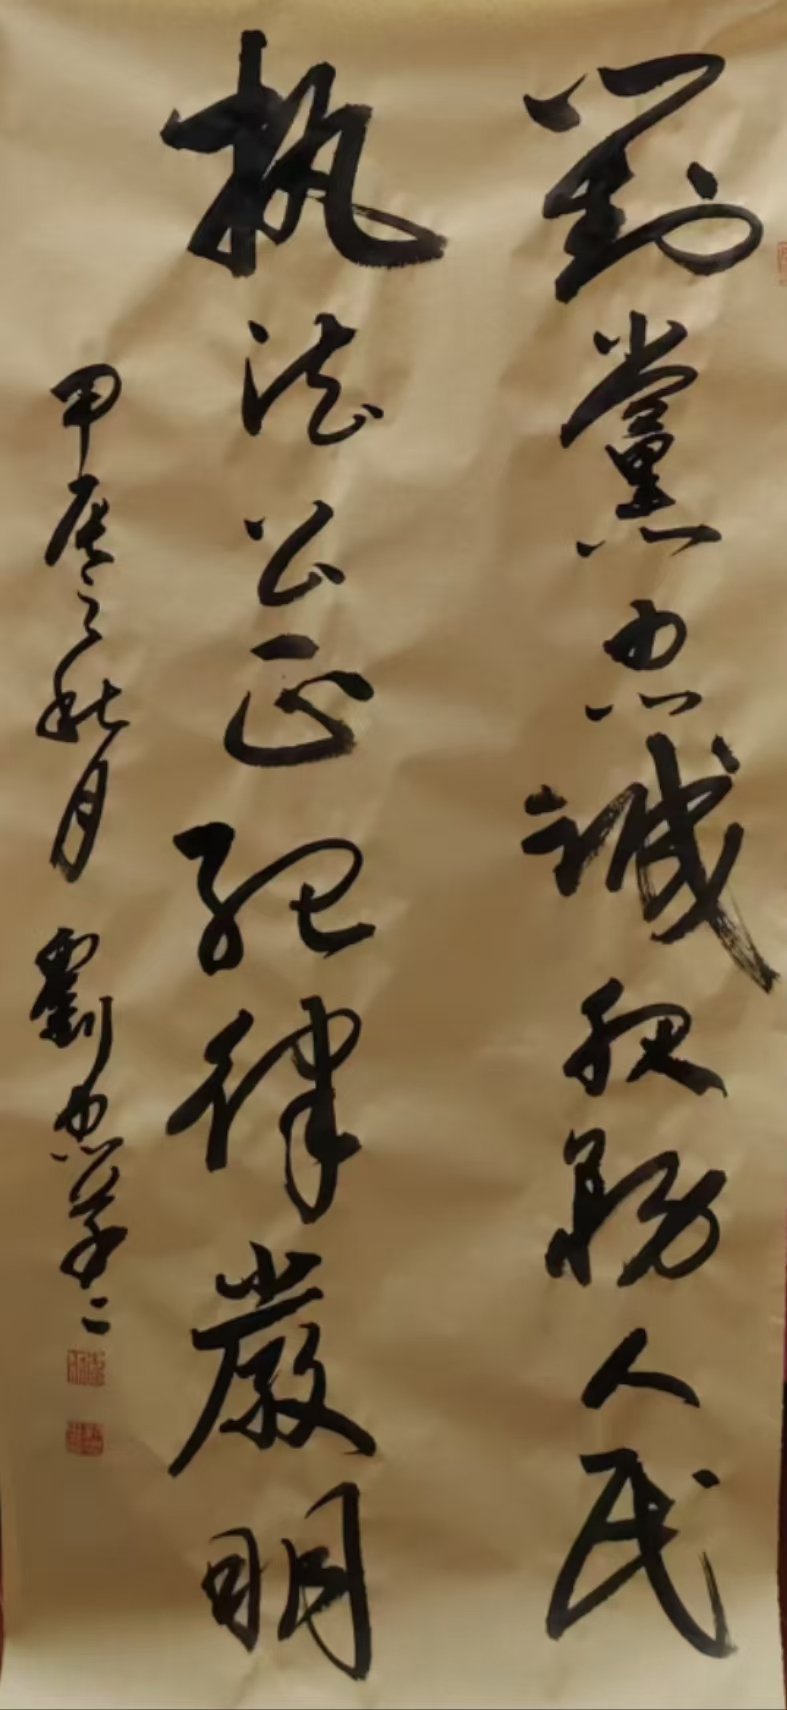 對黨忠誠服務人民
执法公正紀律嚴明
甲辰之秋月 劉忠